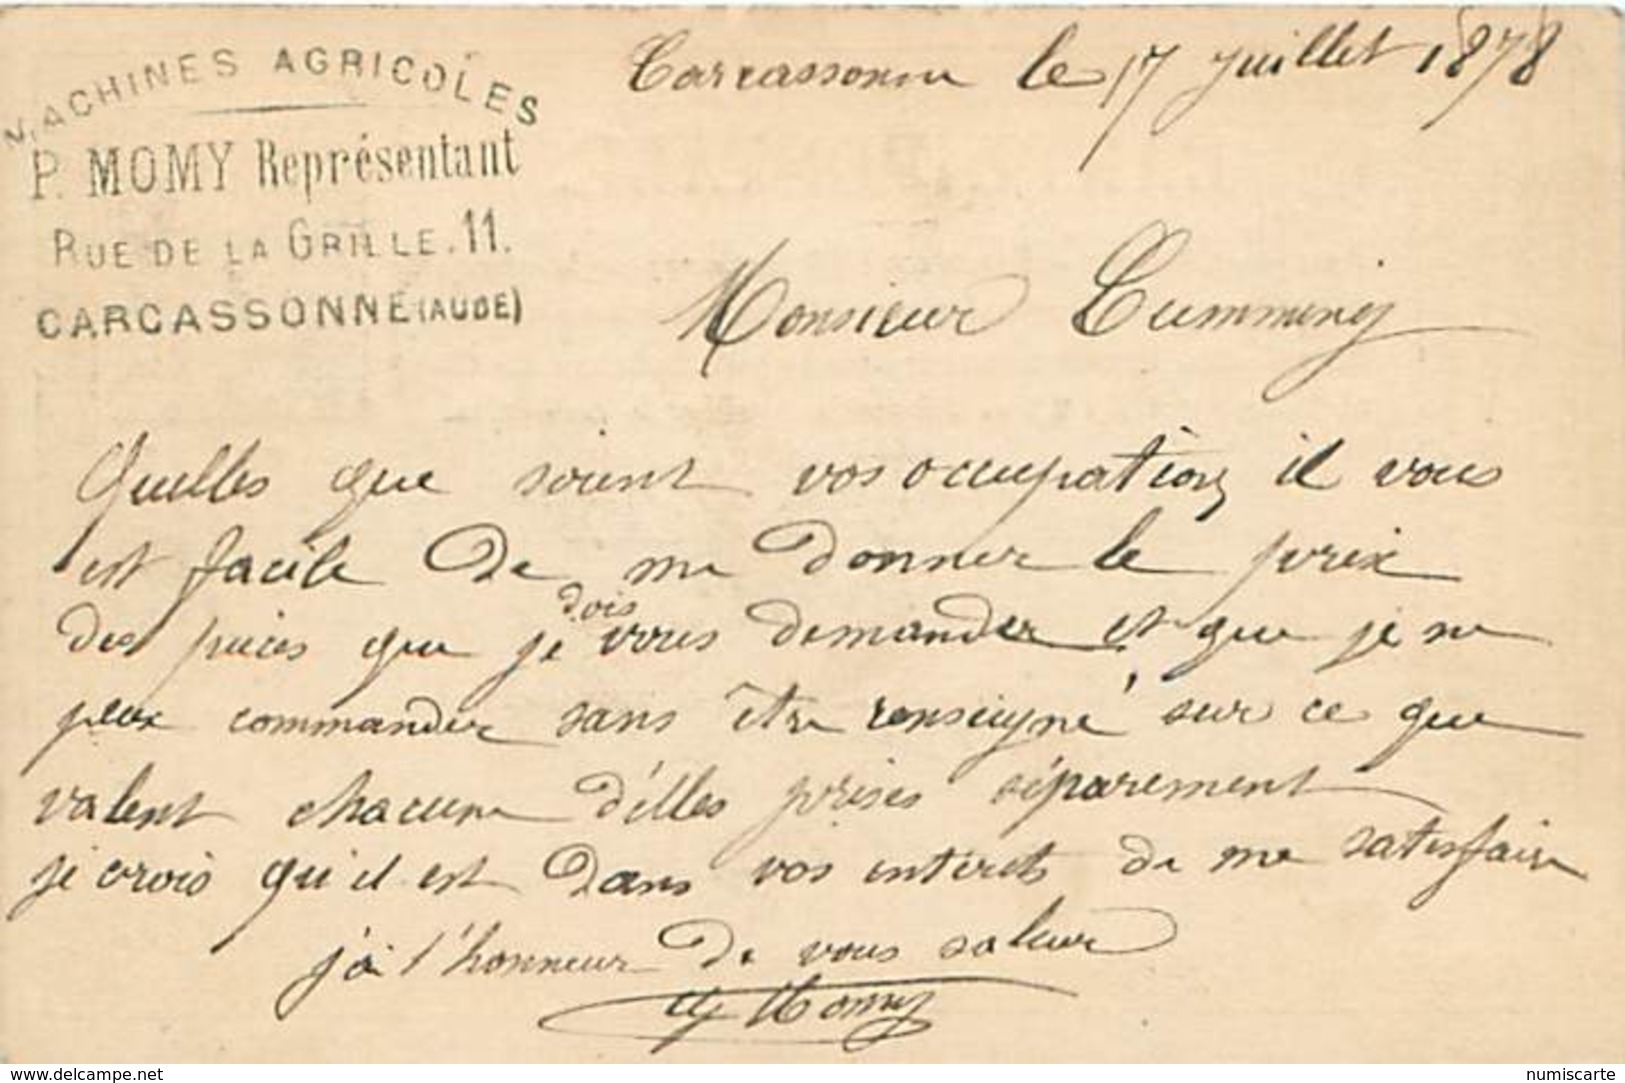 MACHINES AGRICOLES
P. MOMY Représentant
RUE DE LA GRILLE. 11.
CARCASSONNE (AUDE)
Carcassonne le 17 juillet 1878
Monsieur Cumming
Quelles que soient vos occupations il vous
est facile de me donner le prix
dois
des pièces que je vous demander et que je ne
peux commander sans être renseigné sur ce que
valent chacune d'élles prises séparement
je crois qu'il est dans vos intérets de me satisfaire
j'ai l'honneur de vous saluer
Momy
www.delcampe.net
numiscarte